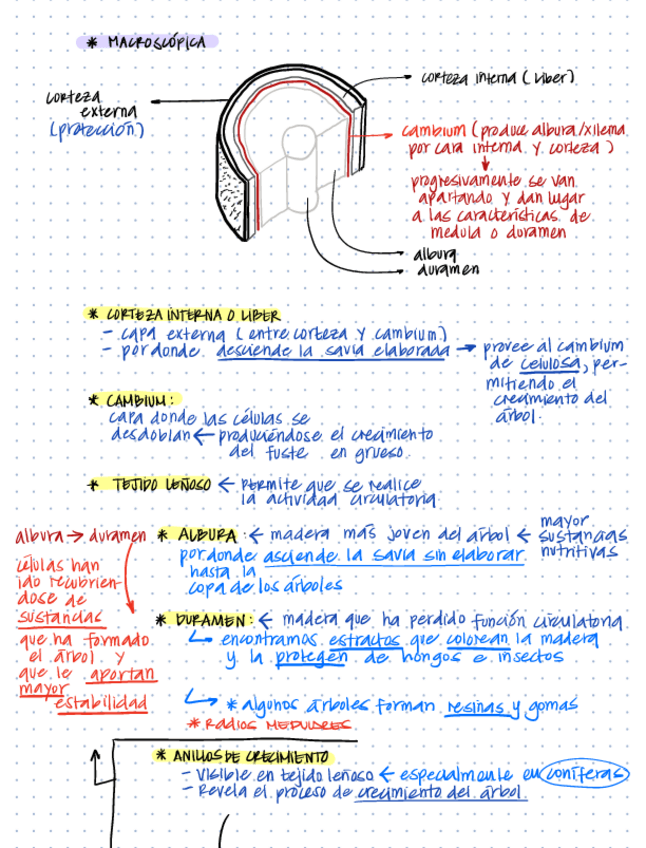 * MACROSCÓPICA
corteza interna (Liber)
corteza
externa
(protección)
cambium (produce albura/xilema
por cara interna y corteza)
progresivamente se van
apartando y dan lugar
a las características de
medula o duramen
albura
duramen
* CORTEZA INTERNA O LIBER
- capa externa (entre corteza y cambium)
- por donde desciende la savia elaborada → provee al cambium
de celulosa, per-
mitiendo el
crecimiento del
árbol.
* CAMBIUM:
capa donde las células se
desdoblan ← produciéndose el crecimiento
del fuste en grueso.
* TEJIDO LEÑOSO ← permite que se realice
la actividad circulatoria
albura → duramen
células han
ido recubrien-
dose de
sustancias
que ha formado
el árbol y
que le aportan
mayor
estabilidad
* ALBURA: ← madera más joven del árbol ← mayor
sustancias
nutritivas
por donde asciende la savia sin elaborar
hasta la
copa de los árboles
* DURAMEN: ← madera que ha perdido función circulatoria
encontramos extractos que colorean la madera
y la protegen de hongos e insectos
* algunos árboles forman resinas y gomas
* RADIOS MEDULARES
* ANILLOS DE CRECIMIENTO
- Visible en tejido leñoso ← especialmente en coníferas
- Revela el proceso de crecimiento del árbol.